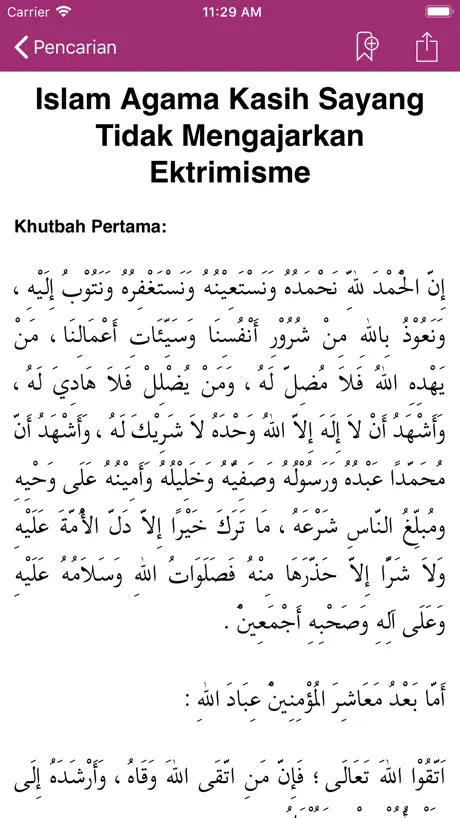 Carrier 11:29 AM
Pencarian
Islam Agama Kasih Sayang
Tidak Mengajarkan
Ektrimisme
Khutbah Pertama:
إِنَّ الْحَمْدَ لِلَّهِ نَحْمَدُهُ وَنَسْتَعِيْنُهُ وَنَسْتَغْفِرُهُ وَنَتُوْبُ إِلَيْهِ ،
وَنَعُوْذُ بِاللهِ مِنْ شُرُوْرِ أَنْفُسِنَا وَسَيِّئَاتِ أَعْمَالِنَا ، مَنْ
يَهْدِهِ اللهُ فَلَا مُضِلَّ لَهُ ، وَمَنْ يُضْلِلْ فَلَا هَادِيَ لَهُ ،
وَأَشْهَدُ أَنْ لاَ إِلَهَ إِلاَّ اللهُ وَحْدَهُ لاَ شَرِيْكَ لَهُ ، وَأَشْهَدُ أَنَّ
مُحَمَّدًا عَبْدُهُ وَرَسُوْلُهُ وَصَفِيُّهُ وَخَلِيْلُهُ وَأَمِيْنُهُ عَلَى وَحْيِهِ
ومُبلِّغُ النَّاسِ شَرْعَهُ ، مَا تَرَكَ خَيْرًا إِلاَّ دَلَّ الأُمَّةَ عَلَيْهِ
وَلَا شَرًّا إِلاَّ حَذَّرَهَا مِنْهُ فَصَلَوَاتُ اللهِ وَسَلَامُهُ عَلَيْهِ
وَعَلَى آلِهِ وَصَحْبِهِ أَجْمَعِيْنَ .
أَمَّا بَعْدُ مَعَاشِرَ المُؤْمِنِيْنَ عِبَادَ اللهِ :
اَتَّقُوْا اللهَ تَعَالَى ؛ فَإِنَّ مَنِ اتَّقَى اللهَ وَقَاهُ ، وَأَرْشَدَهُ إِلَى